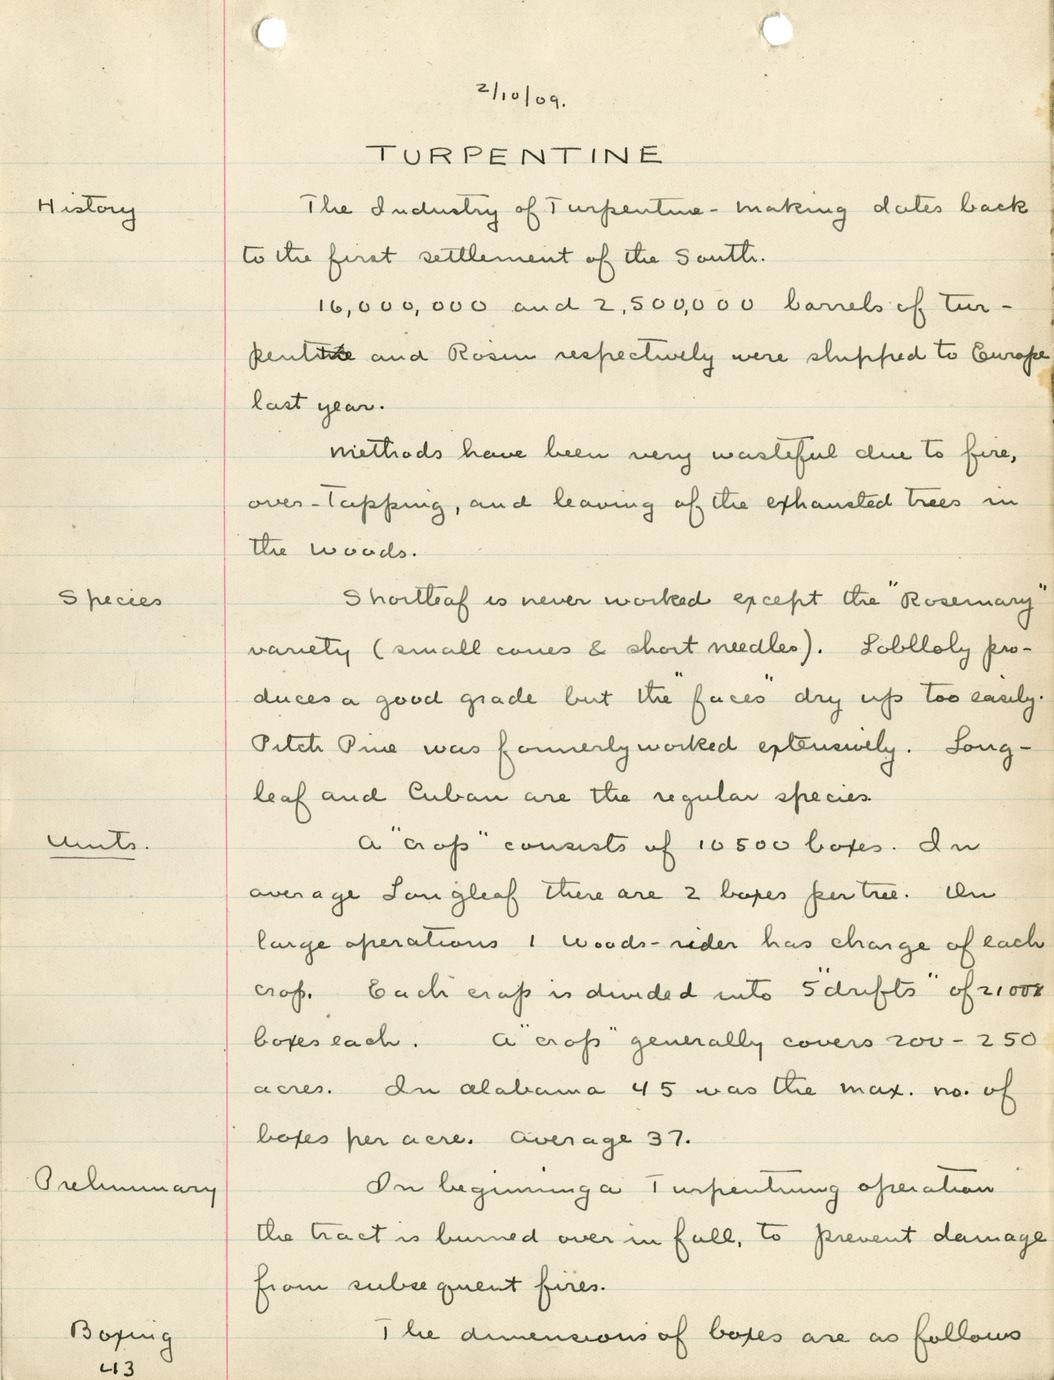 2/10/09.
TURPENTINE
History
The Industry of Turpentine-making dates back
to the first settlement of the South.
16,000,000 and 2,500,000 barrels of tur-
pentine and Rosin respectively were shipped to Europe
last year.
Methods have been very wasteful due to fire,
over-Tapping, and leaving of the exhausted trees in
the woods.
Species
Shortleaf is never worked except the "Rosemary"
variety (small cones & short needles). Loblloly pro-
duces a good grade but the "faces" dry up too easily.
Pitch Pine was formerly worked extensively. Long-
leaf and Cuban are the regular species.
Units.
A "crop" consists of 10500 boxes. In
average Longleaf there are 2 boxes per tree. In
large operations 1 woods-rider has charge of each
crop. Each crop is divided into 5 "drifts" of
boxes each. A "crop" generally covers 200-250
acres. In Alabama 45 was the max. no. of
boxes per acre. Average 37.
Preliminary
In beginning a Turpentining operation
the tract is burned over in fall, to prevent damage
from subsequent fires.
Boxing
The dimensions of boxes are as follows
43